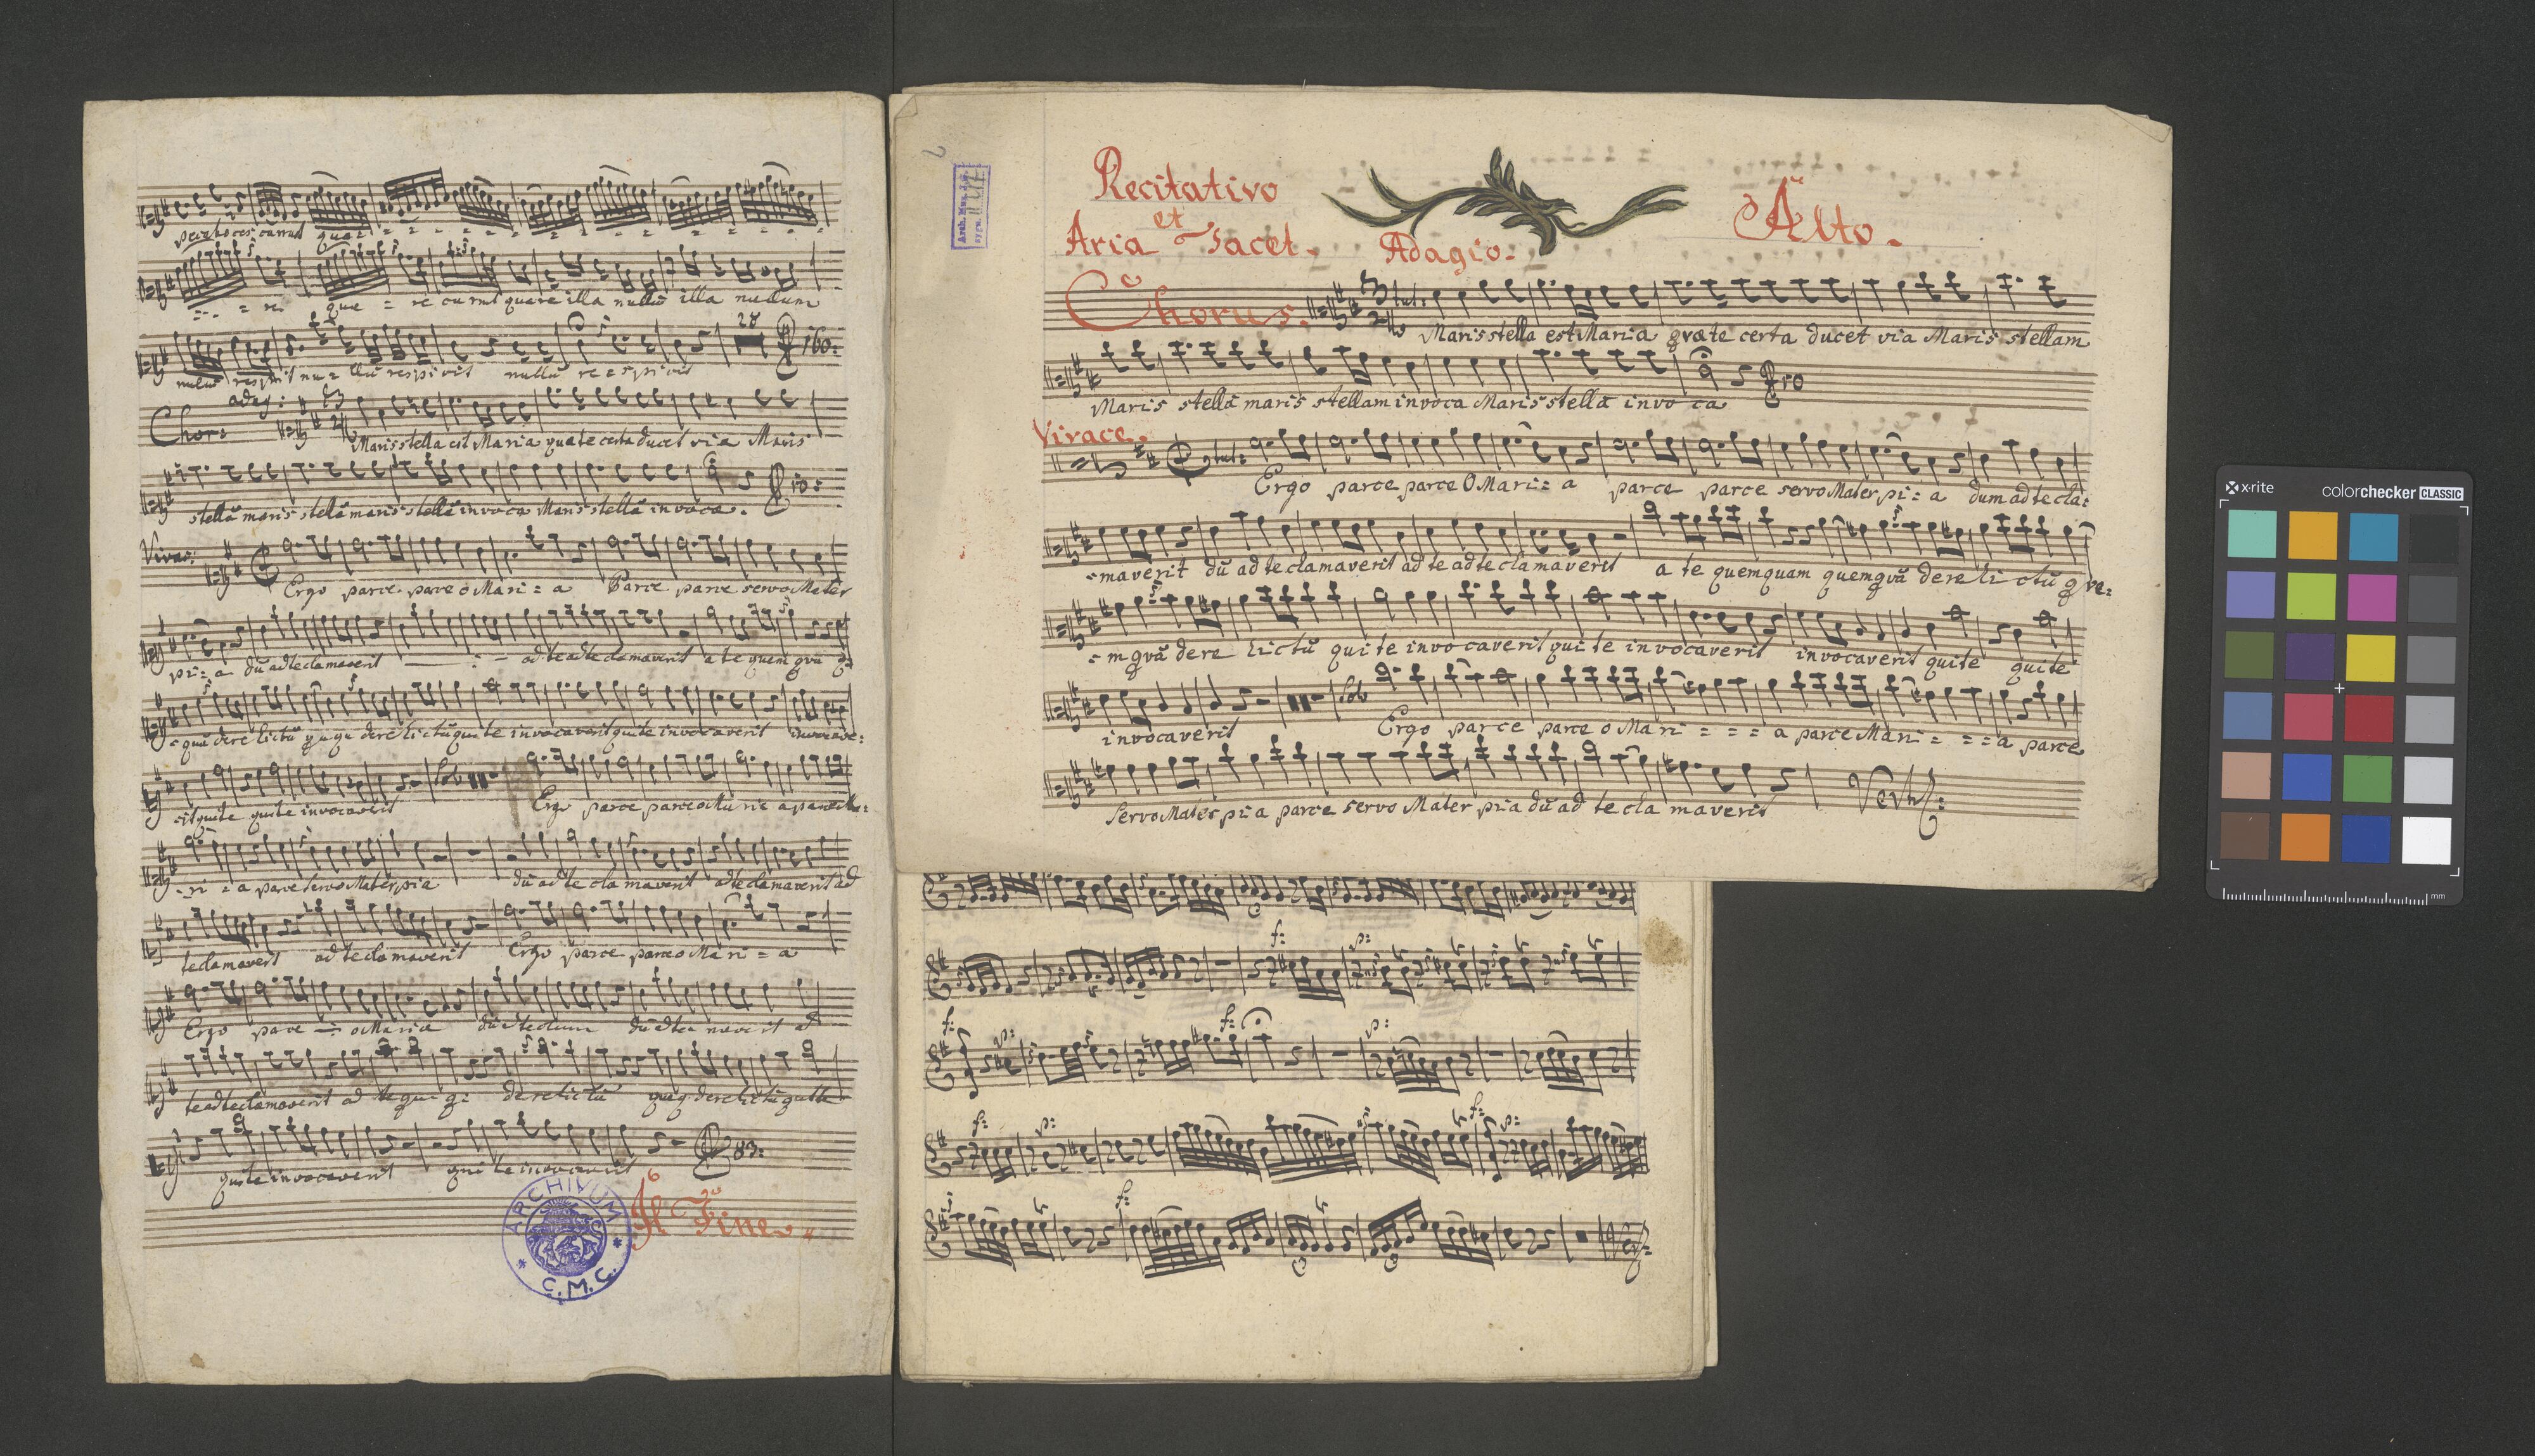 que
que = re currunt quare illa nullū illa nullum
nullū respirit nu = llū respirit nullū re = spirit
28
160:
adag:
Chor:
Maris stella est Maria quæ te certa ducet via Maris
stellā maris stellā maris stellā invoca Maris stellā invoca.
10:
Vivac:
Ergo parce parce o Mari = a Parce parce servo Mater
pi = a dū ad te clamaverit ad te ad te clamaverit a te quem quā
derelictū derelictū qui te invocaverit qui te invocaverit
qui te invocaverit Solo Ergo parce parce o Ma
= ri = a parce servo Mater pia dū ad te clamaverit ad te clamaverit ad
te clamaverit ad te clamaverit Ergo parce parce o Ma ri = a
Ergo parce o Maria
te ad te clamaverit ad te derelictū
qui te invocaverit qui te invocaverit
83:
Il Fine.
ARCHIVUM
C.M.C.
Recitativo
et
Aria Tacet.
Adagio.
Alto.
Chorus.
tut:
Maris stella est Maria qvæ te certa ducet via Maris stellam
Maris stellā maris stellam invoca Maris stellā invo ca
10
Vivace.
tut:
Ergo parce parce O Mari = a parce parce servo Mater pi = a dum ad te cla:
=maverit dū ad te clamaverit ad te ad te clamaverit a te quemquam quemqvā dere li ctū qve:
=mqvā dere lictū qui te invo caverit qui te invocaverit invocaverit qui te qui te
invocaverit Solo Ergo parce parce o Ma ri = = = a parce Mari = = = a parce
servo Mater pi a parce servo Mater pia dū ad te cla maverit Vert:
f: p:
f: p: f: p:
f: p: f: p:
f:
x·rite colorchecker CLASSIC
mm